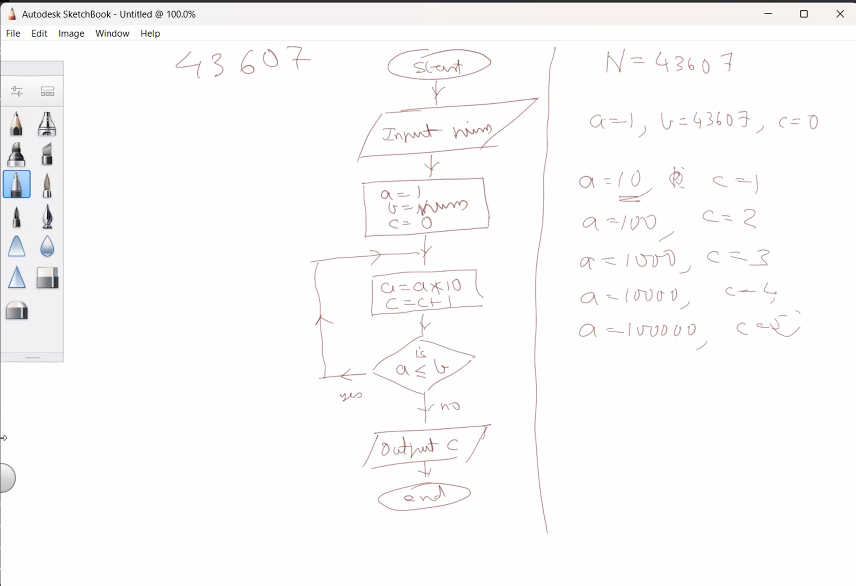 Autodesk SketchBook - Untitled @ 100.0%
File Edit Image Window Help
43607
Start
Input num
a=1
b=num
c=0
a=a*10
c=c+1
is
a ≤ b
yes
no
Output c
end
N=43607
a=1, b=43607, c=0
a=10, c=1
a=100, c=2
a=1000, c=3
a=10000, c=4,
a=100000, c=5